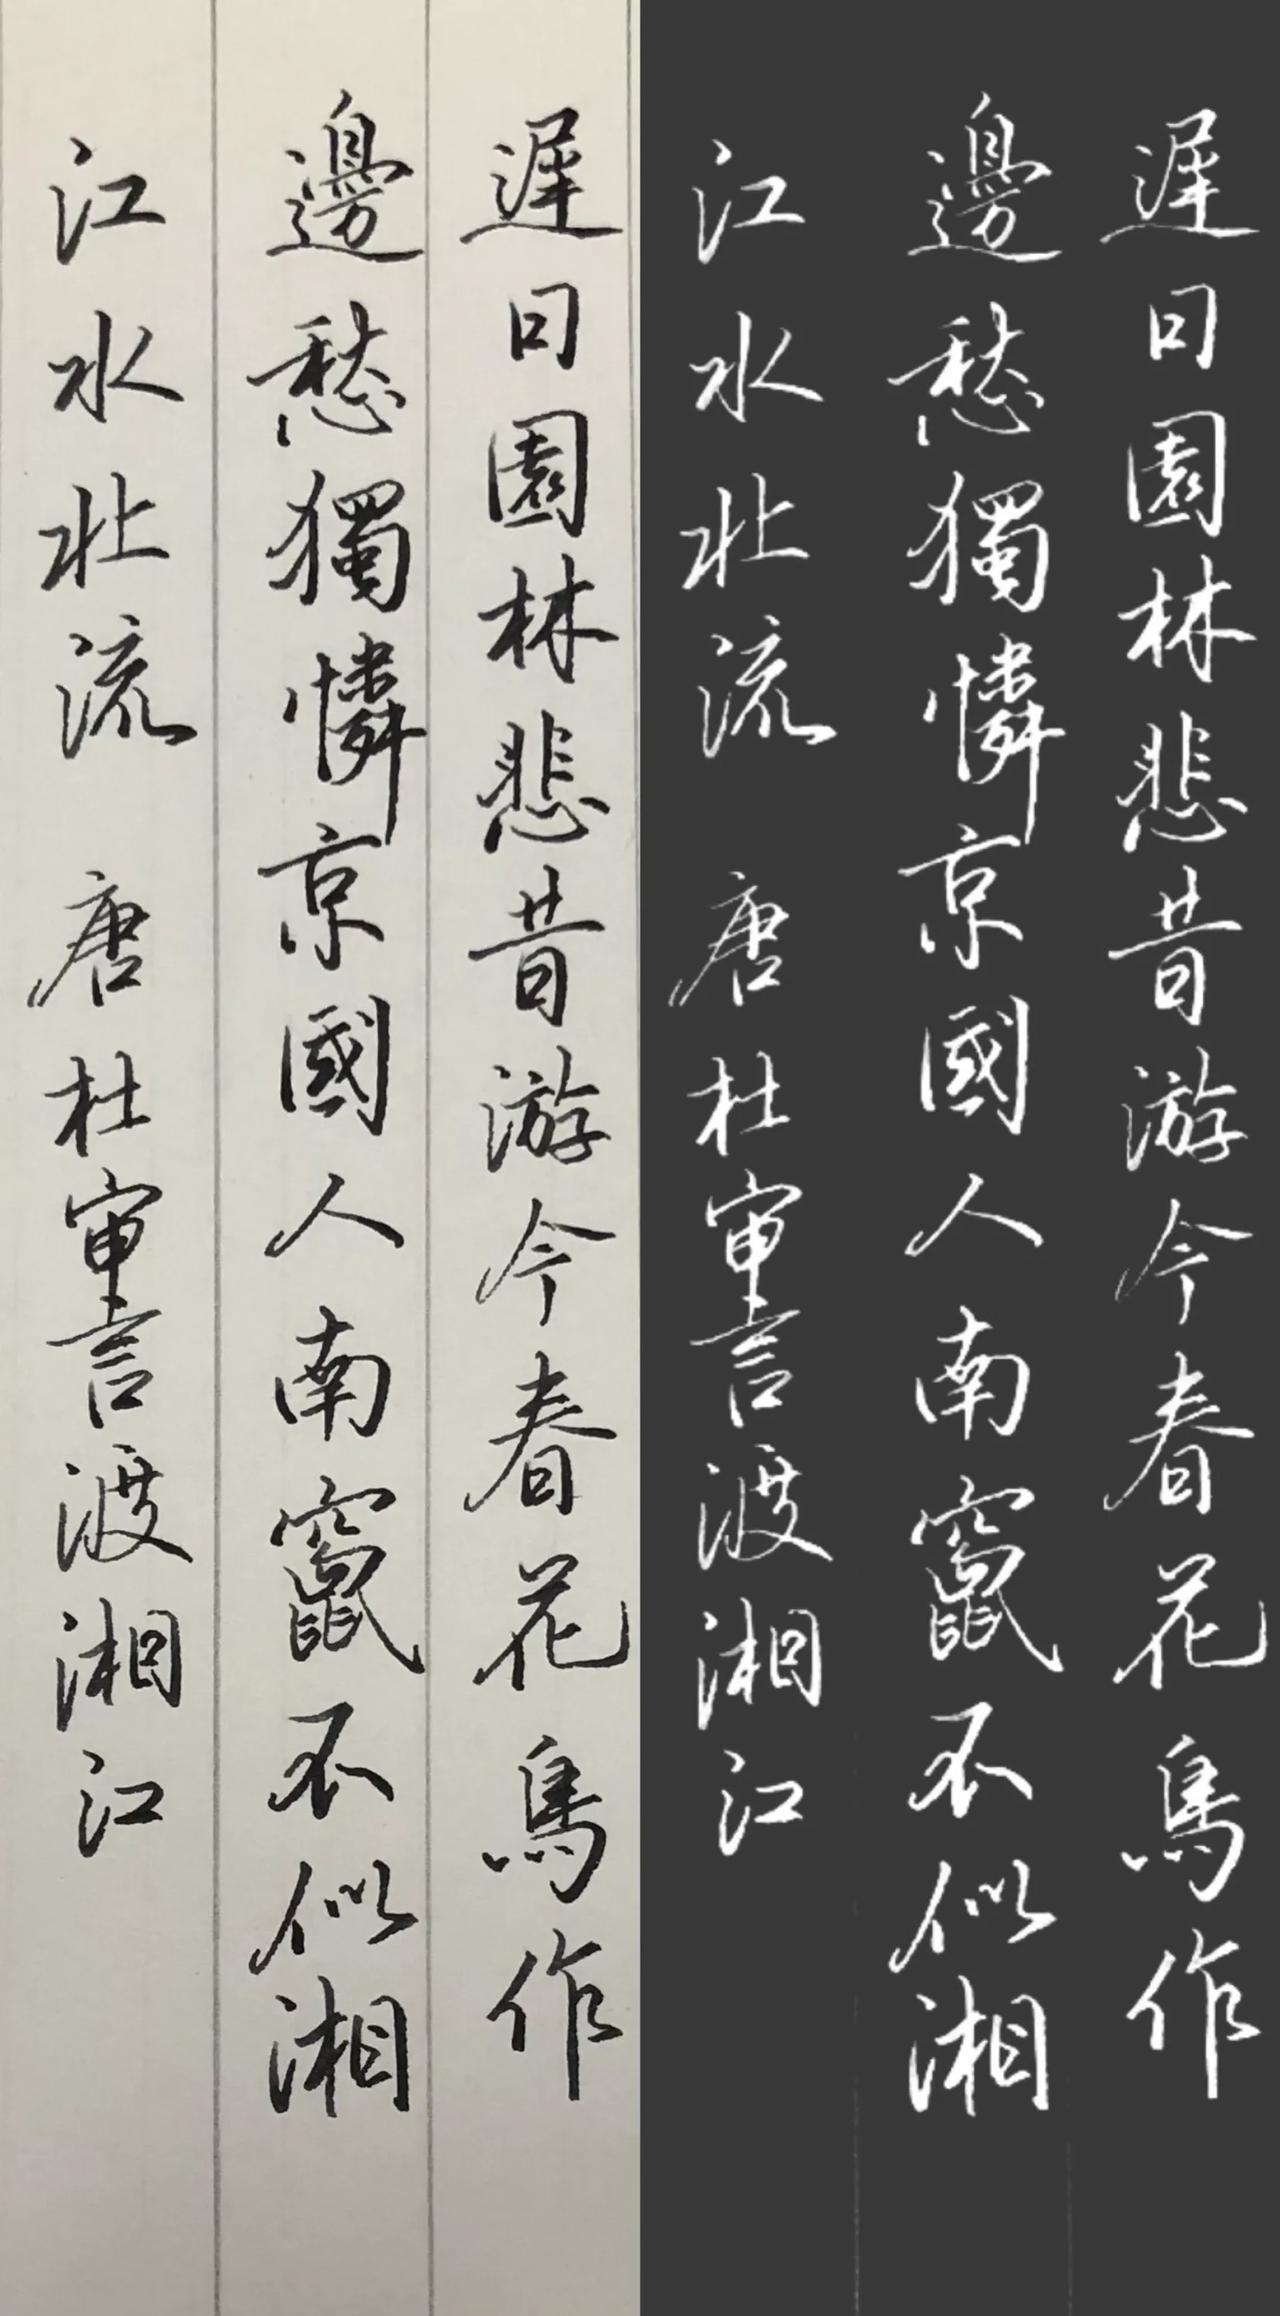 遅日園林悲昔游今春花鳥作
邊愁獨憐京國人南竄不似湘
江水北流 唐杜审言渡湘江
遅日園林悲昔游今春花鳥作
邊愁獨憐京國人南竄不似湘
江水北流 唐杜审言渡湘江